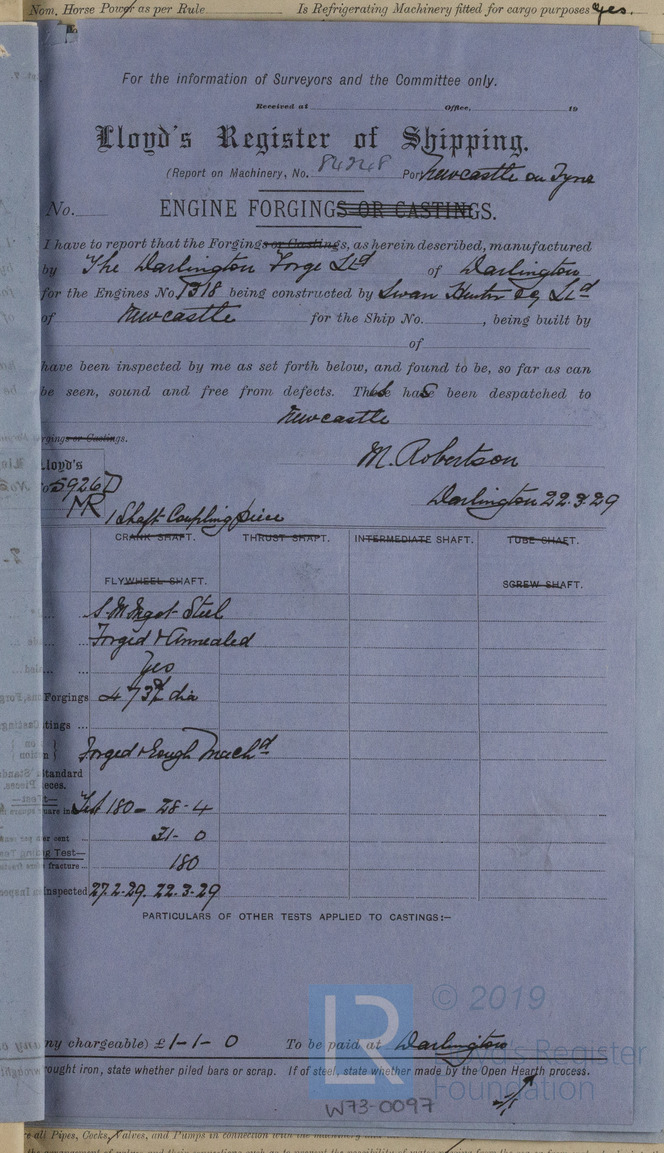 Nom. Horse Power as per Rule Is Refrigerating Machinery fitted for cargo purposes Yes.
For the information of Surveyors and the Committee only.
Received at Office, 19
Lloyd's Register of Shipping.
(Report on Machinery, No. 84248 Port Newcastle on Tyne
No. ENGINE FORGINGS OR CASTINGS.
I have to report that the Forgings or Castings, as herein described, manufactured
by The Darlington Forge Ltd of Darlington
for the Engines No 1318 being constructed by Swan Hunter Ltd
of Newcastle for the Ship No. , being built by
of
have been inspected by me as set forth below, and found to be, so far as can
be seen, sound and free from defects. This has been despatched to
Newcastle
rgings or Castings.
M. Robertson
Lloyd's
No 5926 D
MR
Darlington 22.3.29
1 Shaft Coupling piece
CRANK SHAFT. THRUST SHAFT. INTERMEDIATE SHAFT. TUBE SHAFT.
FLYWHEEL SHAFT. SCREW SHAFT.
S.M. Ingot Steel
Forged & Annealed
Yes
Forgings dia
tings ...
Forged & Rough Machd
Standard
eces.
Test 180 - 28-4
31-0
180
inspected 27.2.29. 22.3.29
PARTICULARS OF OTHER TESTS APPLIED TO CASTINGS:—
ny chargeable) £1-1-0 To be paid at Darlington
rought iron, state whether piled bars or scrap. If of steel, state whether made by the Open Hearth process.
© 2019
LR
Lloyd's Register
Foundation
W73-0097
all Pipes, Cocks, Valves, and Pumps in connection with the machinery and